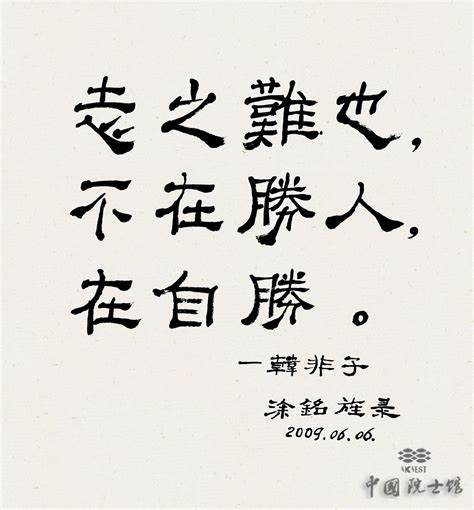 志之難也,
不在勝人,
在自勝。
一韓非子
涂銘旌录
2009.06.06.
CKNEST
中國院士馆